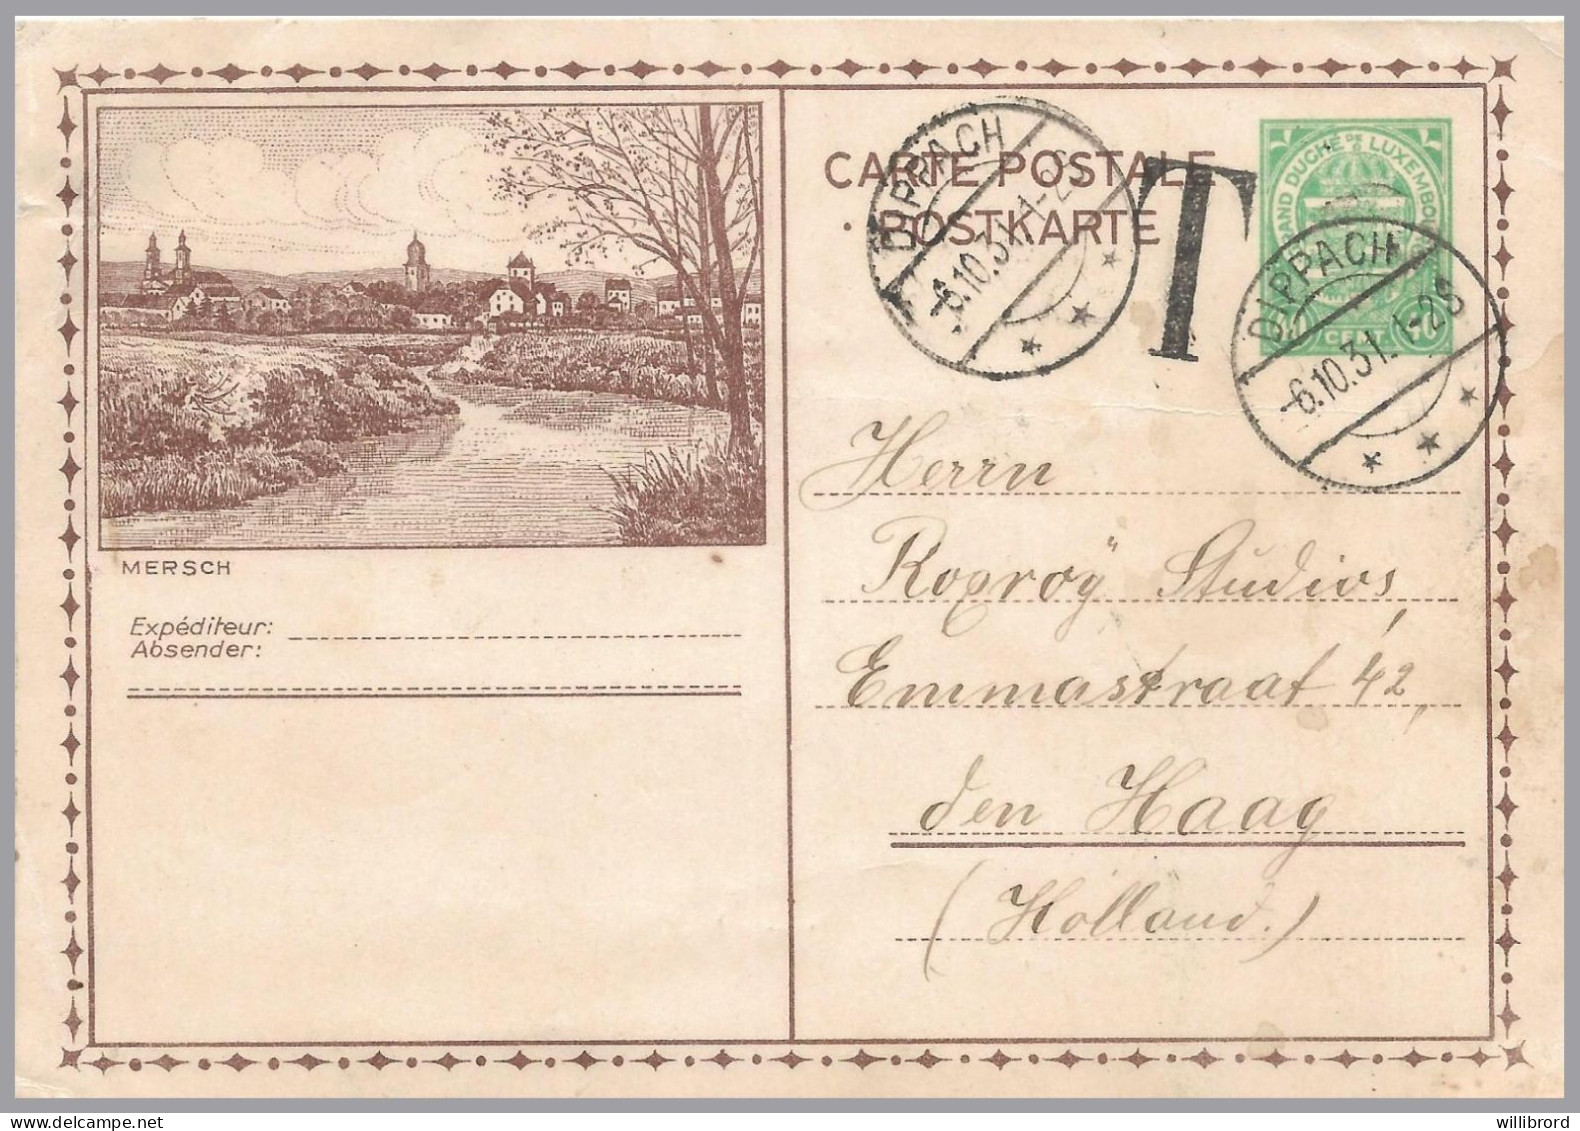 MERSCH
Expéditeur:
Absender:
CARTE POSTALE
POSTKARTE
DIPPACH
-6.10.31. 1-2S
T
GRAND DUCHÉ DE LUXEMBOURG
10 CENT. 10
DIPPACH
-6.10.31. 1-2S
Herrn
Roxroÿ Studios,
Emmastraat 42,
den Haag
(Holland.)
delcampe.net
willibrord